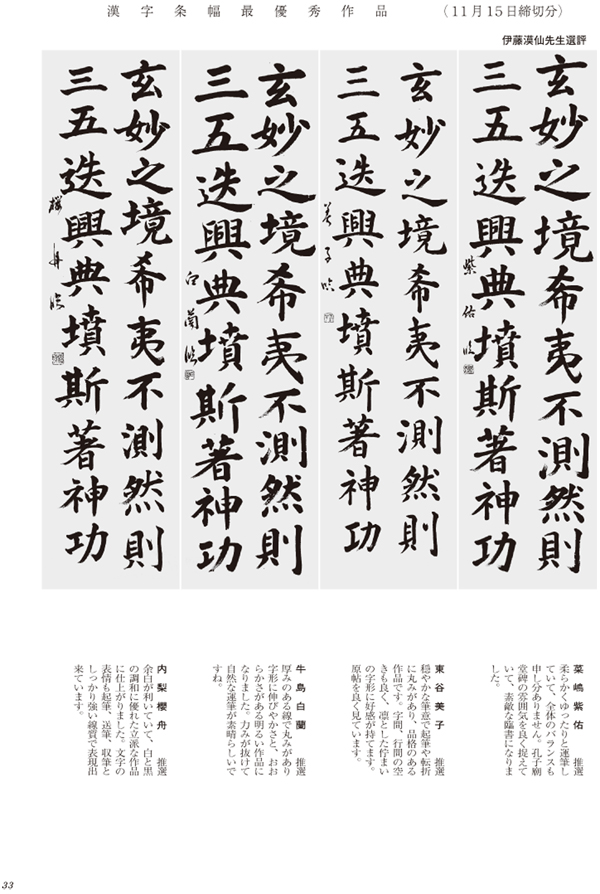 漢字条幅最優秀作品　（11月15日締切分）
伊藤漠仙先生選評
玄妙之境希夷不測然則
三五迭興典墳斯著神功
紫佑臨
玄妙之境希夷不測然則
三五迭興典墳斯著神功
美子臨
玄妙之境希夷不測然則
三五迭興典墳斯著神功
白蘭臨
玄妙之境希夷不測然則
三五迭興典墳斯著神功
櫻舟臨
菜嶋紫佑　推選
柔らかくゆったりと運筆し
ていて、全体のバランスも
申し分ありません。孔子廟
堂碑の雰囲気を良く捉えて
いて、素敵な臨書になりま
した。
東谷美子　推選
穏やかな筆意で起筆や転折
に丸みがあり、品格のある
作品です。字間、行間の空
きも良く、凛とした佇まい
の字形に好感が持てます。
原帖を良く見ています。
牛島白蘭　推選
厚みのある線で丸みがあり
字形に伸びやかさと、おお
らかさがある明るい作品に
なりました。力みが抜けて
自然な運筆が素晴らしいで
すね。
内梨櫻舟　推選
余白が利いていて、白と黒
の調和に優れた立派な作品
に仕上がりました。文字の
表情も起筆、送筆、収筆と
しっかり強い線質で表現出
来ています。
33